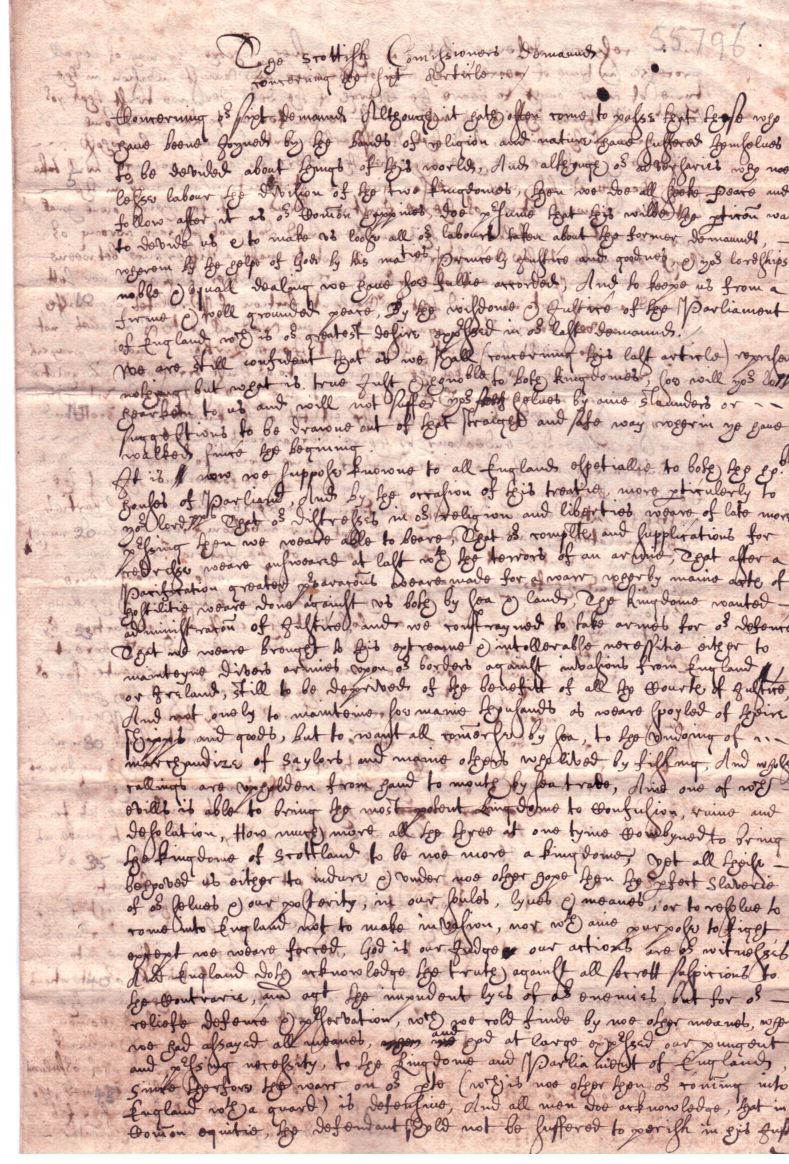 55796
The Scottish Comissioners demaunds
concerning the sixt Article
Concerning or sixt demaund Although it hath often come to passe that those who
have beene joyned by the bands of religion and nature have suffered themselves
to be devided about things of this world, And although or adversaries who noe
lesse labour the division of the two kingdomes, then we doe all seeke Peace and
follow after it as or Comon happines doe presume that this wilbe the particon wa
to devide us & to make us loose all or labours taken about the former demaunds,
wherein by the helpe of God by his maties Princely Justice and goodnes, & yor lordships
noble & equall dealing we have soe fullie accorded, And to keepe us from a
firme & well grounded peace, By the wisdome & Justice of the Parliament
of England wch is or greatest desire expressed in or last demaund.
We are still confident that as we shall (concerning this last article)
nothing but what is true Just & honoble to both kingdomes, soe will yor lopps
hearken to us and will not suffer yor selves by anie slaunders or
suggestions to be drawne out of that straight and safe way wherin ye have
walked since the beginning.
It is now we suppose knowne to all England espetiallie to both the
houses of Parliamt, And by the occasion of this treatie, more pticularly to
yor lopps That or distresses in or religion and liberties weare of late more
pressing then we weare able to beare, That or complts and supplications for
redresse weare answeared at last wth the terrors of an armie, That after a
Pacification greater pparacons weare made for a warr, wherby manie acts of
hostilitie weare done against us both by sea & land, The kingdome wanted
administracon of Justice, and we constrayned to take armes for or defence
That we weare brought to this extreame & intollerable necessitie either to
mainteyne divers armies upon or borders against invasions from England
or Ireland, still to be deprived of the benefitt of all the Courts of Justice,
And not onely to mainteine soe manie thousands as weare spoyled of theire
shipps and goods, but to want all comerce by sea, to the undoing of
marchandize of Saylers and manie others who lived by fishing, And whose
callings are upholden from hand to mouth by sea trade, And one of wch
evills is able to bring the most potent kingdome to Confusion, ruine and
desolation, How much more all the three at one tyme Combyned to bring
the kingdome of Scottland to be noe more a kingdome, yet all theise
behoved us either to indure & under noe other hope then the pfect slaverie
of or selves & our posterity, in our soules, lyves & meanes, or to resolve to
come into England not to make invasion, nor wth anie purpose to fight
except we weare forced, God is our Judge our actions are or witnesses
And England doth acknowledge the truth against all secrett suspicions to
the Contrarie, and agt the impudent lyes of or enemies, but for or
reliefe defence & pservation, wch we cold finde by noe other meanes, whe
we had assayed all meanes, and had at large expressed our pungent
and pressing necessity, to the kingdome and Parliament of England,
Since therfore the warr on or pte (wch is noe other then or coming into
England wth a guard) is defensive, And all men doe acknowledge, that in
Comon equitie, the defendant shold not be suffered to perish in his Just